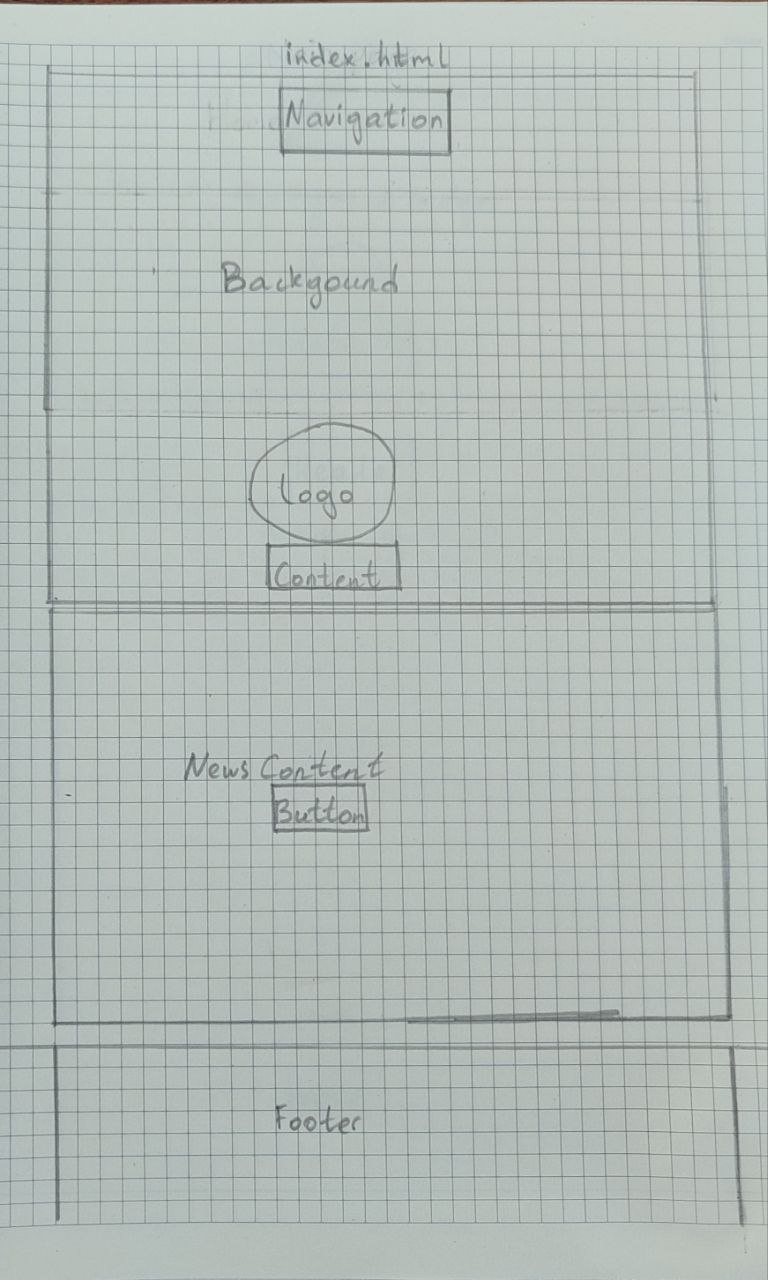 index.html
Navigation
Backgound
Logo
Content
News Content
Button
Footer